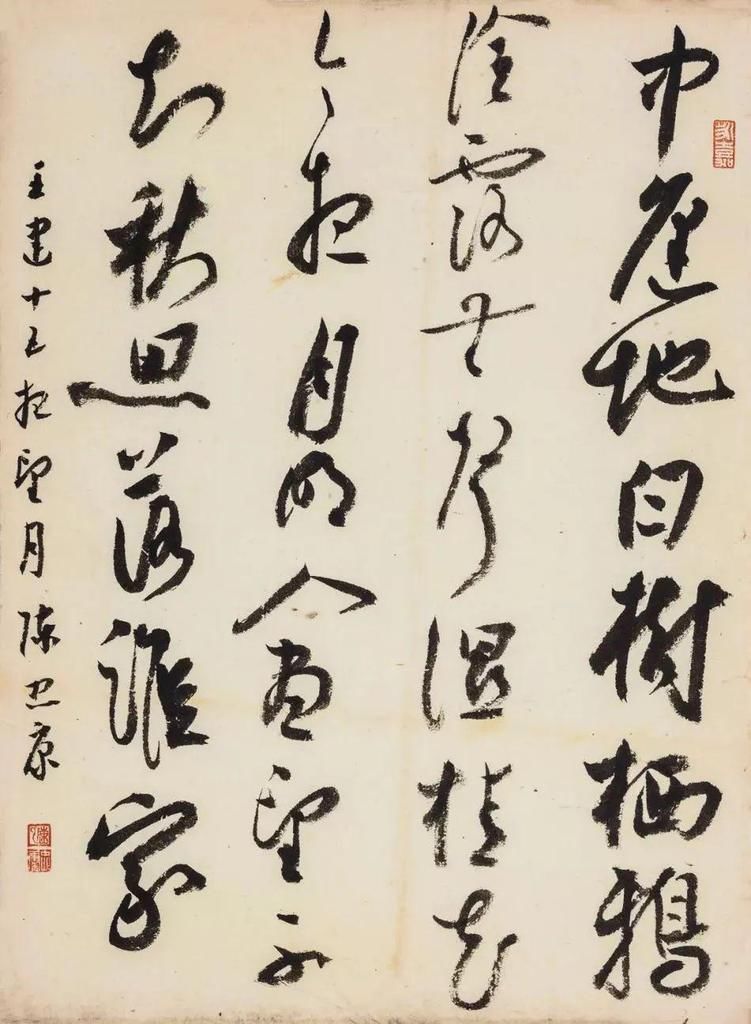 中庭地白樹栖鴉
永嘉
冷露無聲湿桂花
今夜月明人盡望不
知秋思落誰家
王建十五夜望月 陳忠康